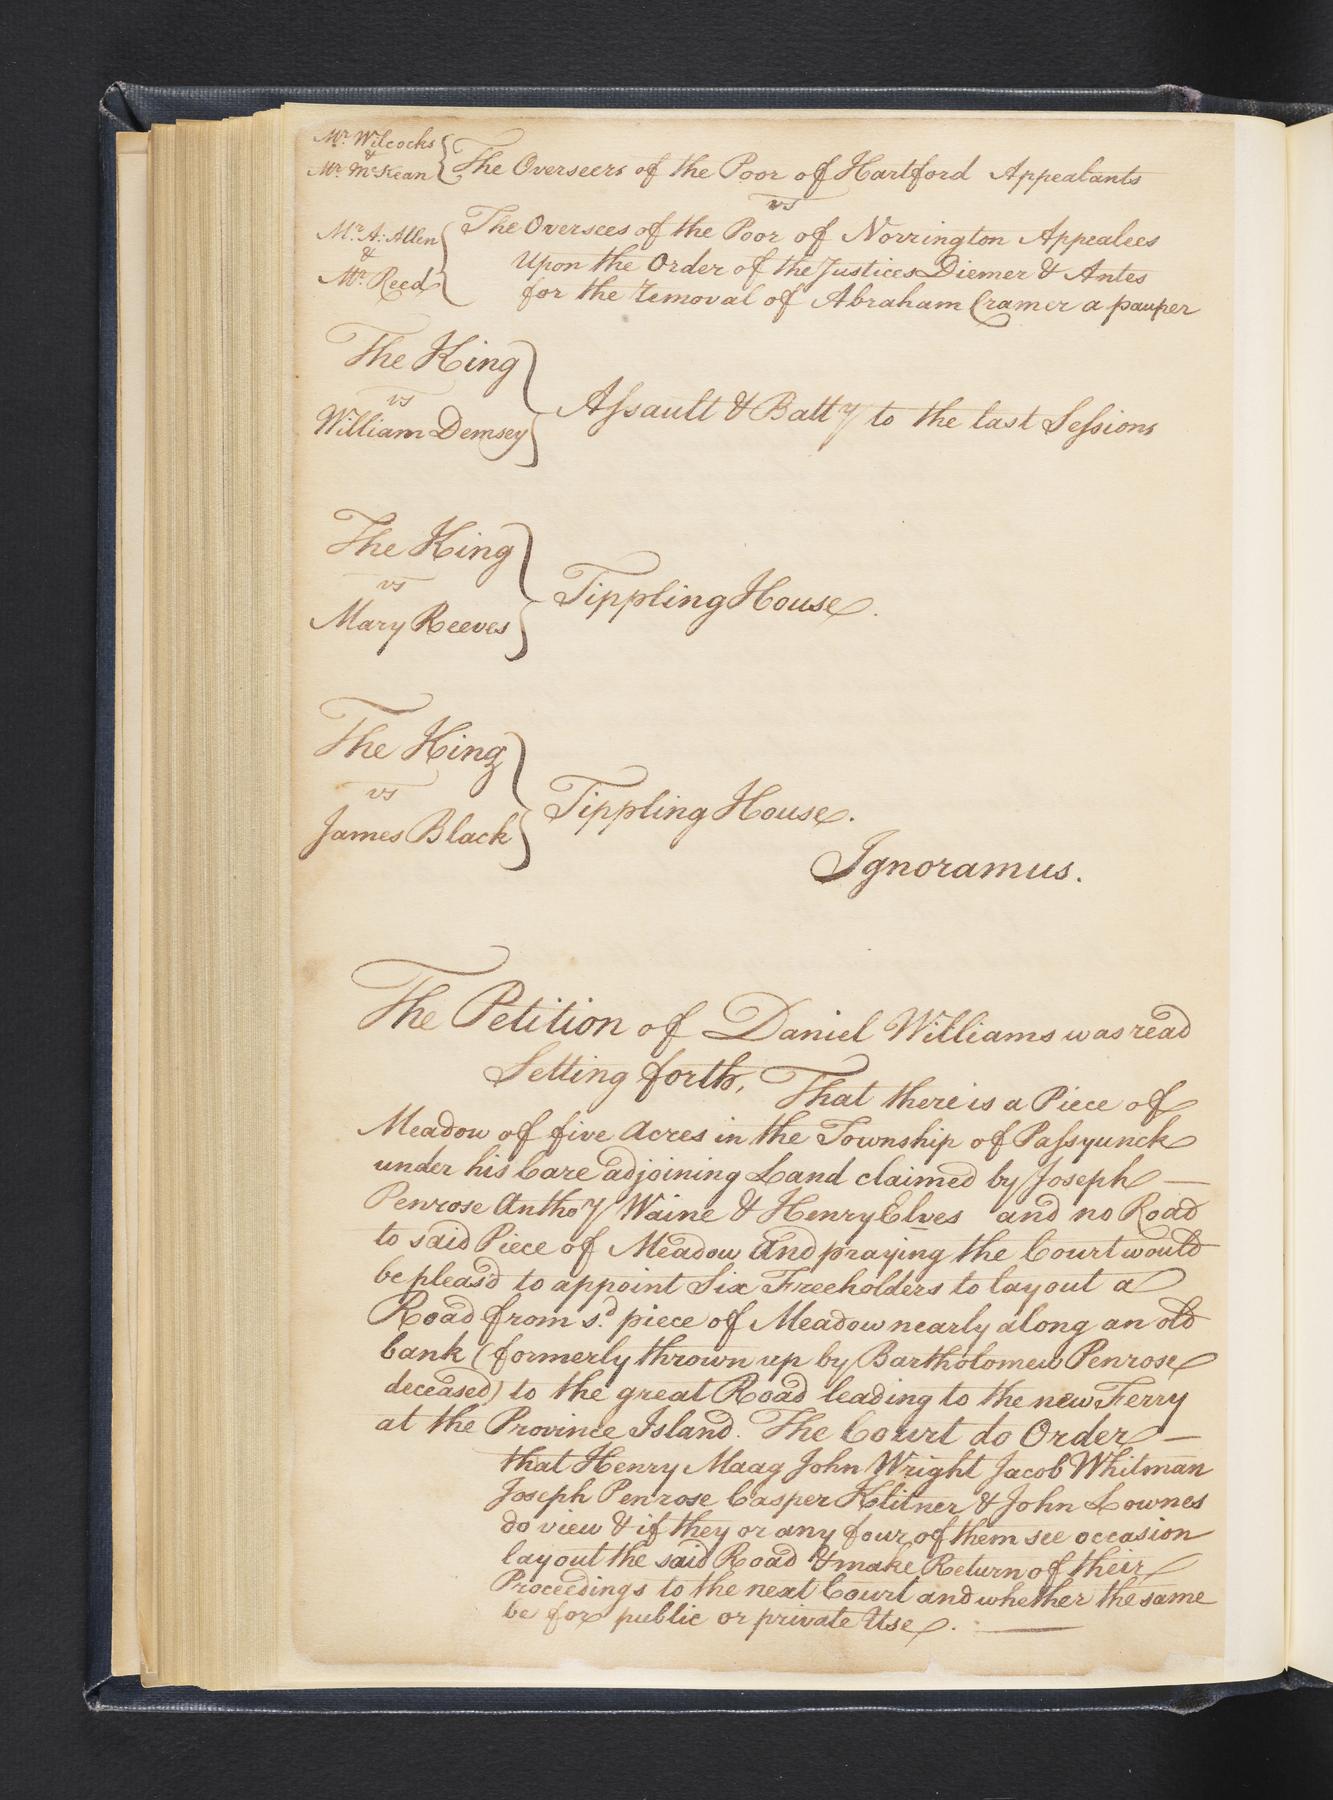 Mr. Wilcocks
&
Mr. McKean
The Overseers of the Poor of Hartford Appealants
vs
Mr. A: Allen
&
Mr. Reed
The Oversees of the Poor of Norrington Appealees
Upon the Order of the Justices Diemer & Antes
for the removal of Abraham Cramer a pauper
The King
vs
William Demsey
Assault & Batty to the last Sessions
The King
vs
Mary Reeves
Tippling House.
The King
vs
James Black
Tippling House.
Ignoramus.
The Petition of Daniel Williams was read
Setting forth, That there is a Piece of
Meadow of five Acres in the Township of Passyunck
under his Care adjoining Land claimed by Joseph —
Penrose Anthoy Waine & Henry Elves and no Road
to said Piece of Meadow And praying the Court would
be pleasd to appoint Six Freeholders to layout a
Road from sd. piece of Meadow nearly along an old
bank (formerly thrown up by Bartholomew Penrose
deceased) to the great Road leading to the new Ferry
at the Province Island. The Court do Order —
that Henry Maag John Wright Jacob Whitman
Joseph Penrose Casper Klitner & John Lownes
do view & if they or any four of them see occasion
layout the said Road & make Return of their
Proceedings to the next Court and whether the same
be for public or private Use. —